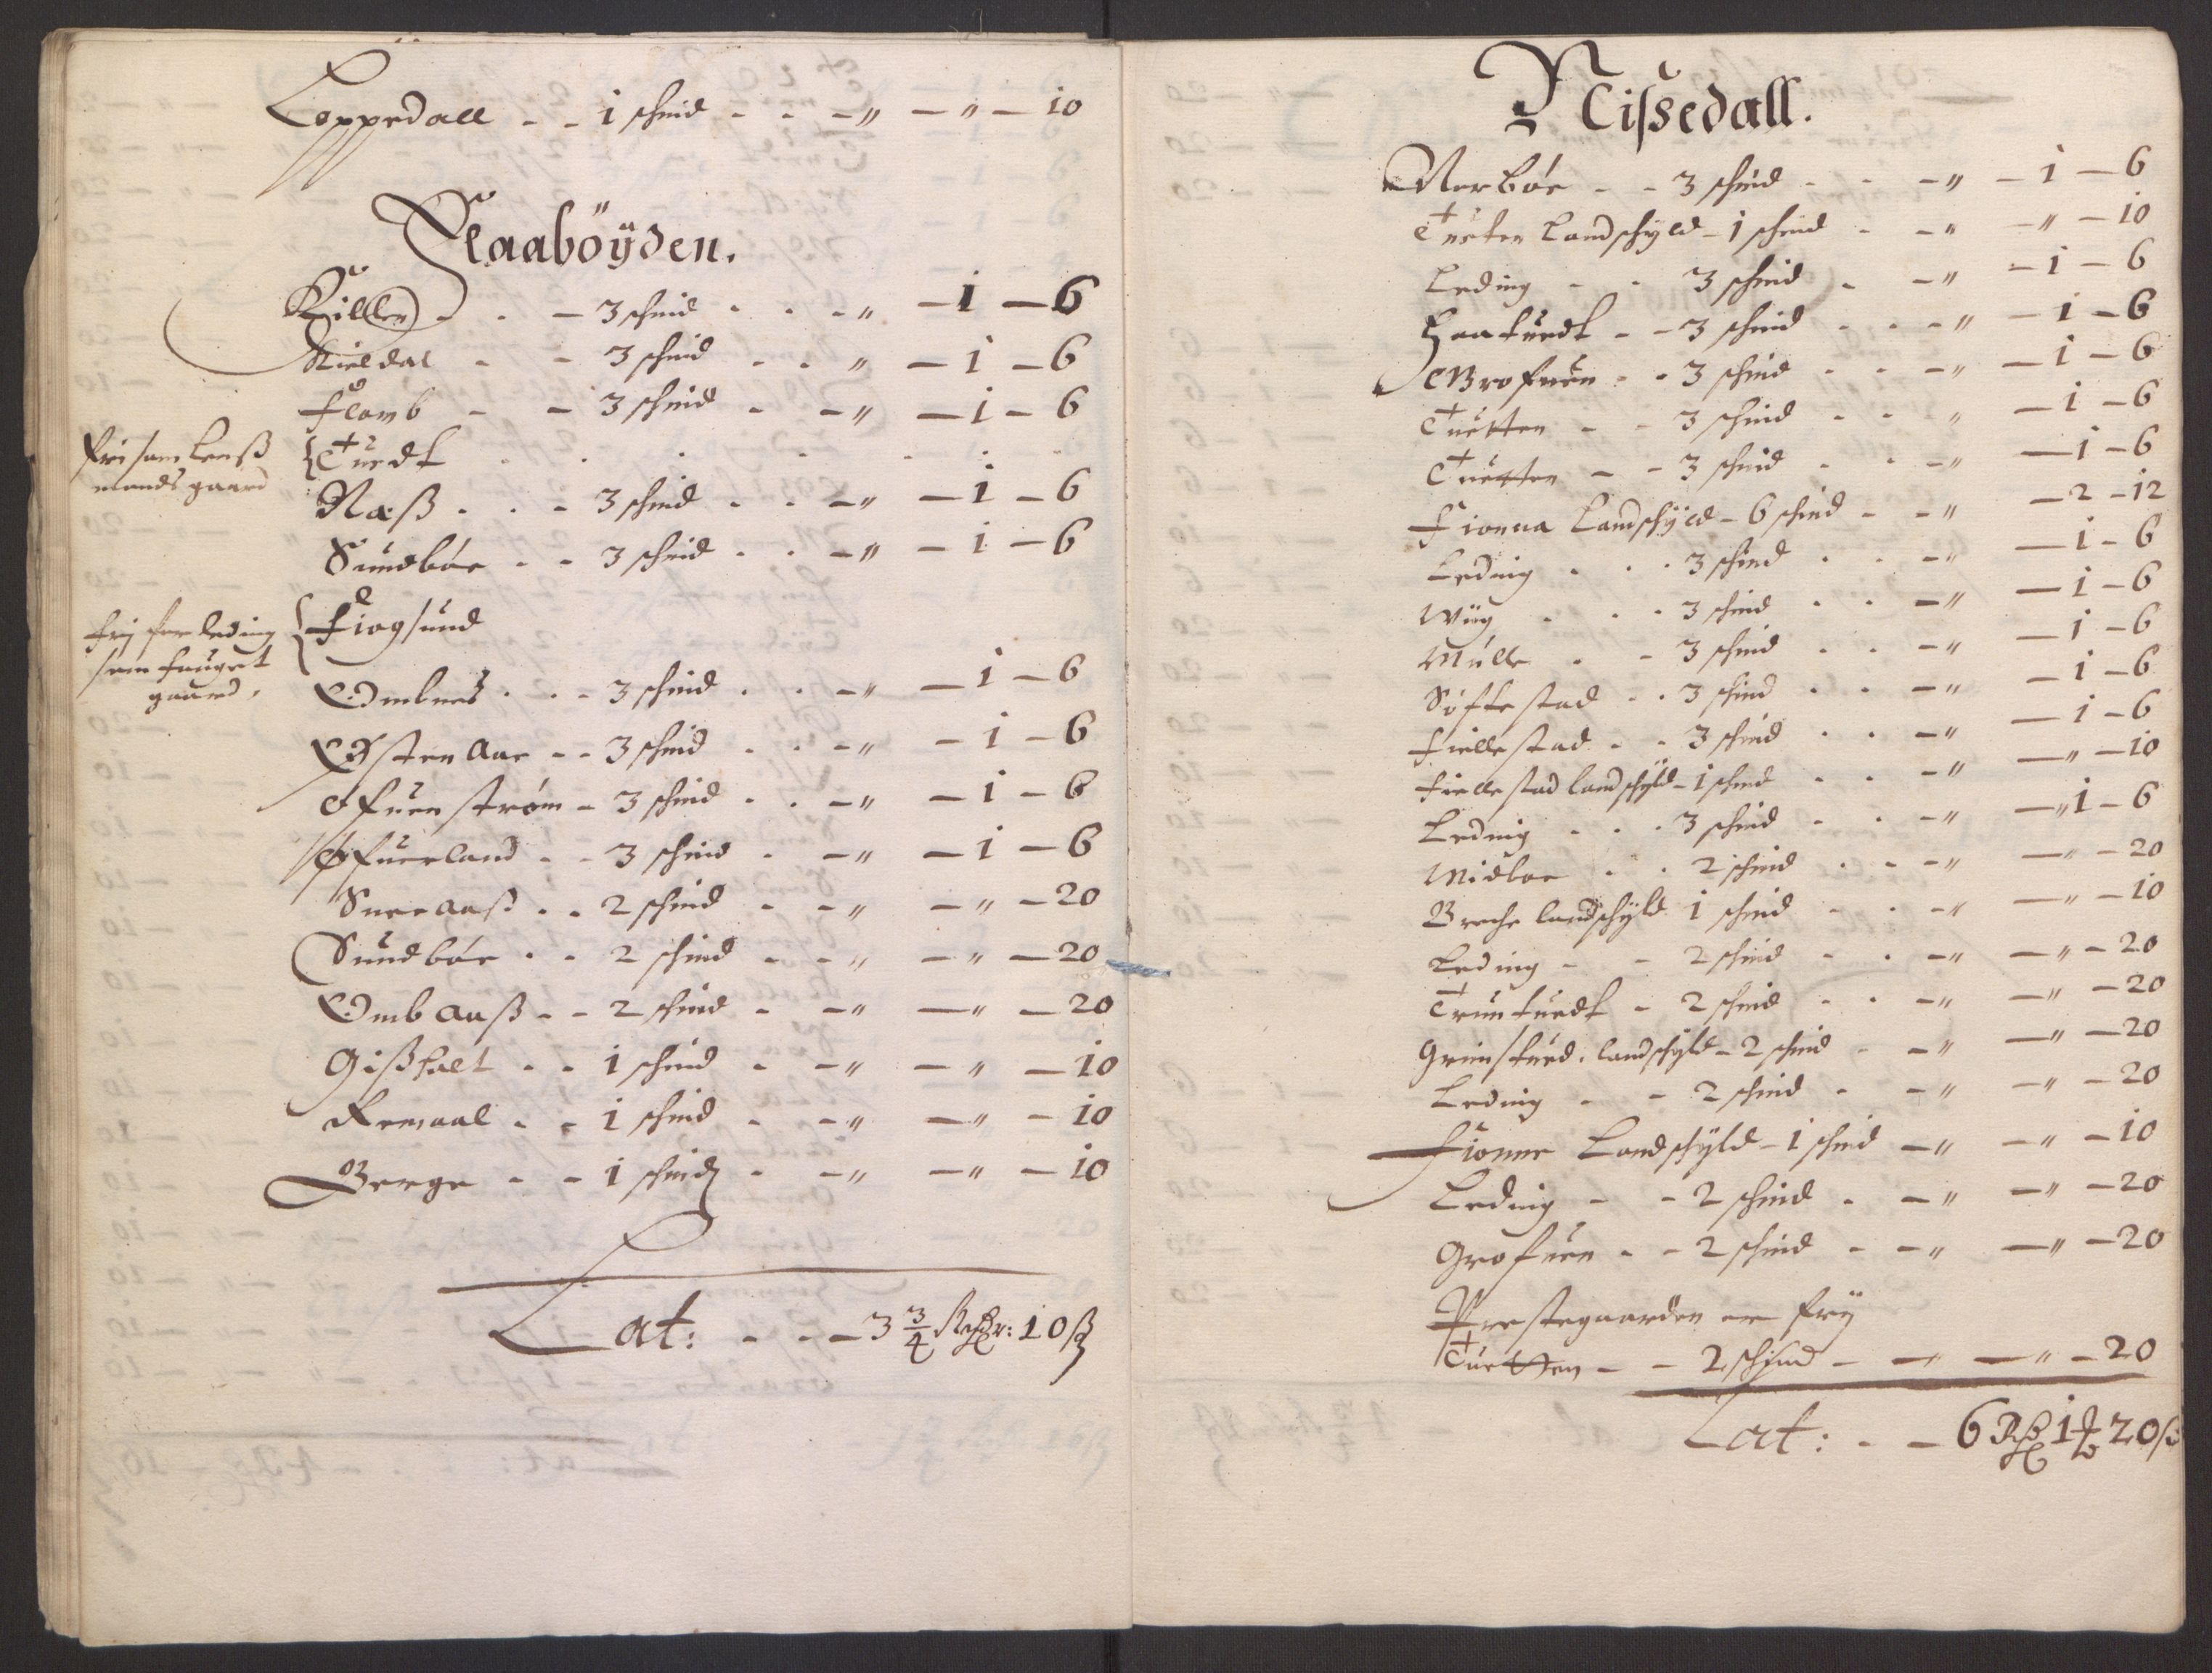 Coppedall - - 1 schind - - - „ - „ - 10
Flaaböyden.
Killen - - - 3 schind - - - „ - 1 - 6
Kieldal - - 3 schind - - „ - 1 - 6
Flomb - - 3 schind - - „ - 1 - 6
fri som lenß
mands gaard
Tuedt
Næß - - - 3 schind - - - „ - 1 - 6
Sundbøe - - 3 schind - - - „ - 1 - 6
frj for leding
som fouget
gaard.
Fiogsund
Ombnes - - - 3 schind - - - „ - 1 - 6
Østen Aae - - 3 schind - - - „ - 1 - 6
Ofuenstrøm - 3 schind - - - „ - 1 - 6
Øfuerland - - 3 schind - - „ - 1 - 6
Sneeaaß - - 2 schind - - „ - „ - 20
Sundbøe - - 2 schind - - „ - „ - 20
Ombaaß - - 2 schind - - „ - „ - 20
Gißhalt - - 1 schind - - „ - „ - 10
Remaal - - 1 schind - - „ - „ - 10
Berge - - 1 schind - - „ - „ - 10
Lat: - - - 3 3/4 Rixdr: 10 ß
Nissedall.
Nerbøe - - 3 schind - - - „ - 1 - 6
Tueten Landschyld - 1 schind - - „ - „ - 10
Leding - - 3 schind - - „ - 1 - 6
Haatuedt - - 3 schind - - - „ - 1 - 6
Grofuen - - 3 schind - - - „ - 1 - 6
Tuetten - - 3 schind - - „ - 1 - 6
Tuetten - - 3 schind - - - „ - 1 - 6
Fionna Landschyld - 6 schind - - „ - 2 - 12
Leding - - - 3 schind - - - „ - 1 - 6
Wiig - - - 3 schind - - - „ - 1 - 6
Mulle - - 3 schind - - - „ - 1 - 6
Søftestad - - 3 schind - - - „ - 1 - 6
Fiellestad - - 3 schind - - - „ - 1 - 6
Fiellestad landschyld - 1 schind - - - „ - „ - 10
Leding - - - 3 schind - - - „ - „ 1 - 6
Midboe - - 2 schind - - - „ - „ - 20
Breche landschyld 1 schind - - - „ - „ - 10
Leding - - 2 schind - - - „ - „ - 20
Truntuedt - 2 schind - - - „ - „ - 20
Grimstued. landschyld - 2 schind - - „ - „ - 20
Leding - - 2 schind - - „ - „ - 20
Fionne Landschyld - 1 schind - „ - „ - 10
Leding - - 2 schind - - „ - „ - 20
Grofuen - - 2 schind - - „ - „ - 20
Prestegaarden er frij
Tuetten - - 2 schind - - - „ - 20
Lat: - - 6 Rd 1 20 ß